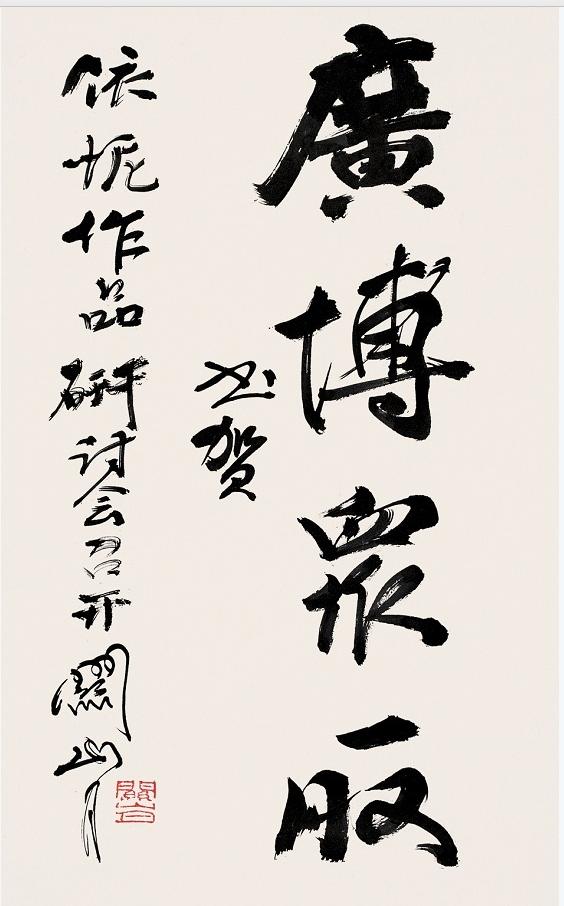 廣博衆取
书賀
依妮作品研讨会召开 關山月